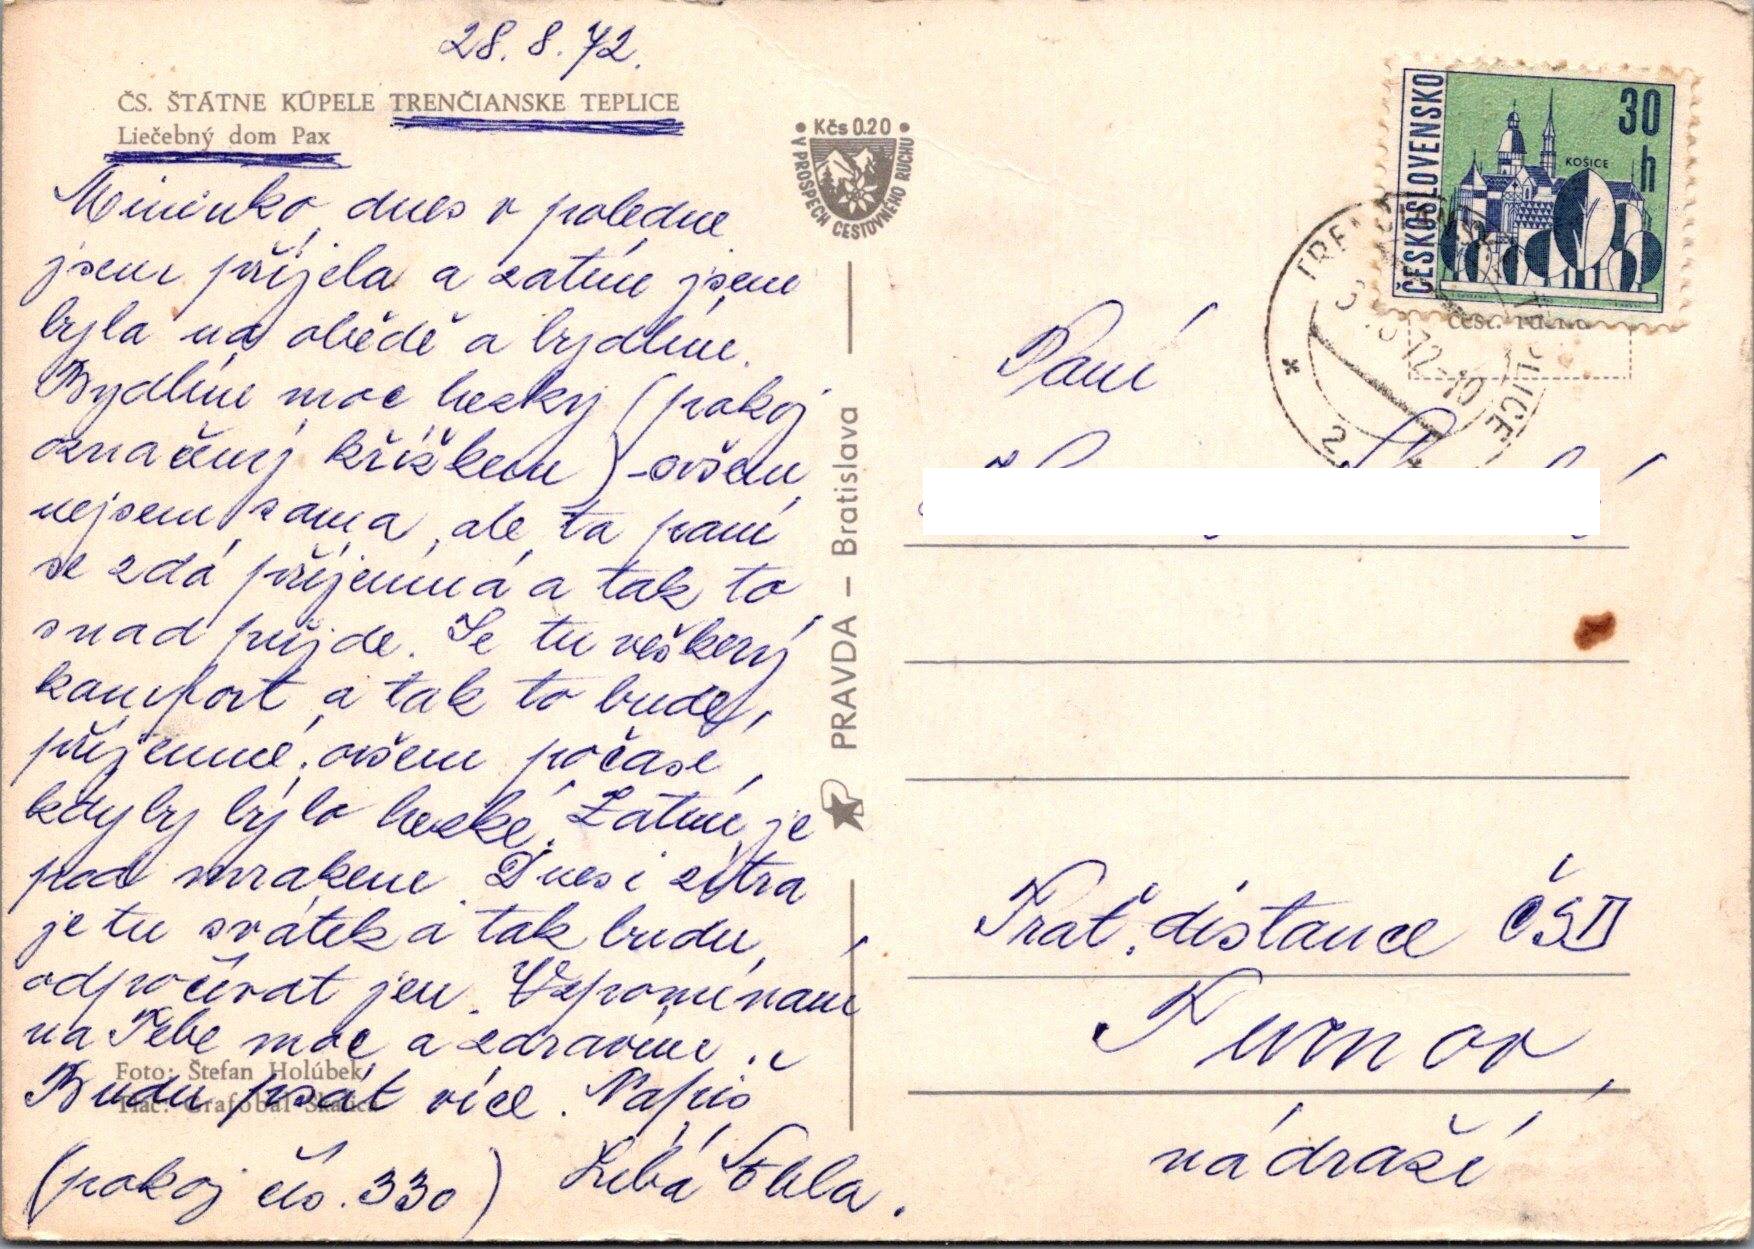 28. 8. 72.
ČS. ŠTÁTNE KÚPELE TRENČIANSKE TEPLICE
Liečebný dom Pax
Mininko, dnes v poledne
jsem přijela a zatím jsem
byla na obědě a bydlím.
Bydlím moc hezky (pokoj
označený křížkem) – ovšem
nejsem sama, ale ta paní
se zdá příjemná a tak to
snad půjde. Je tu veškerý
komfort a tak to bude
příjemné, ovšem počasí,
kdyby bylo hezké. Zatím je
pod mrakem. Dnes i zítra
je tu svátek a tak budu
odpočívat jen. Vzpomínám
na Tebe moc a zdravím ..
Budu psát více. Napiš
(pokoj čís. 330) Líbá
Foto: Štefan Holúbek
Tlač: Grafobal Skalica
Kčs 0.20
V PROSPECH CESTOVNÉHO RUCHU
PRAVDA – Bratislava
ČESKOSLOVENSKO
30 h
KOŠICE
Paní
Trať. distance ČSD
Turnov,
nádraží